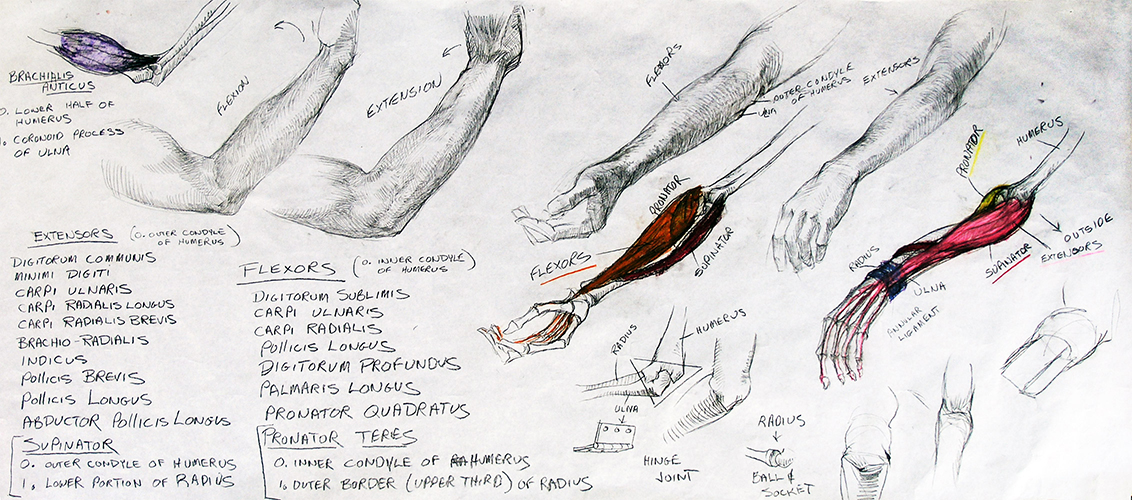 BRACHIALIS
ANTICUS
O. LOWER HALF OF
HUMERUS
I. CORONOID PROCESS
OF ULNA
FLEXION
EXTENSION
FLEXORS
OUTER CONDYLE
OF HUMERUS
ULNA
EXTENSORS
PRONATOR
HUMERUS
PRONATOR
SUPINATOR
FLEXORS
RADIUS
ULNA
SUPINATOR
OUTSIDE
EXTENSORS
ANNULAR
LIGAMENT
EXTENSORS (O. OUTER CONDYLE
OF HUMERUS)
DIGITORUM COMMUNIS
MINIMI DIGITI
CARPI ULNARIS
CARPI RADIALIS LONGUS
CARPI RADIALIS BREVIS
BRACHIO-RADIALIS
INDICUS
POLLICIS BREVIS
POLLICIS LONGUS
ABDUCTOR POLLICIS LONGUS
SUPINATOR
O. OUTER CONDYLE OF HUMERUS
I. LOWER PORTION OF RADIUS
FLEXORS (O. INNER CONDYLE
OF HUMERUS)
DIGITORUM SUBLIMIS
CARPI ULNARIS
CARPI RADIALIS
POLLICIS LONGUS
DIGITORUM PROFUNDUS
PALMARIS LONGUS
PRONATOR QUADRATUS
PRONATOR TERES
O. INNER CONDYLE OF HUMERUS
I. OUTER BORDER (UPPER THIRD) OF RADIUS
RADIUS
HUMERUS
ULNA
HINGE
JOINT
RADIUS
BALL &
SOCKET